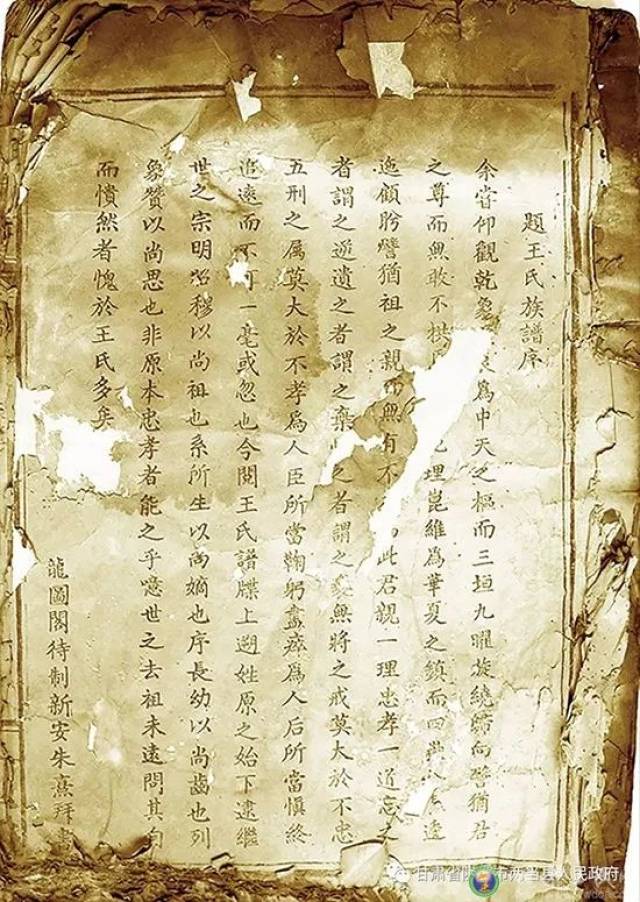 題王氏族譜序
余嘗仰觀乾象為中天之樞而三垣九曜旋繞歸向譬猶君
之尊而無敢不拱理崑維為華夏之鎮而四逶
迤顧盼譬猶祖之親而無有不此君親一理忠孝一道忘之
者謂之逆遺之者謂之棄之者謂之無將之戒莫大於不忠
五刑之属莫大於不孝為人臣所當鞠躬盡瘁為人后所當慎終
追遠而不可一毫或忽也今閱王氏譜牒上遡姓原之始下逮繼
世之宗明昭穆以尚祖也系所生以尚嫡也序長幼以尚齒也列
象贊以尚思也非原本忠孝者能之乎噫世之去祖未遠問其
而憒然者愧於王氏多矣
龍圖閣待制新安朱熹拜書
甘肃省市两当县人民政府